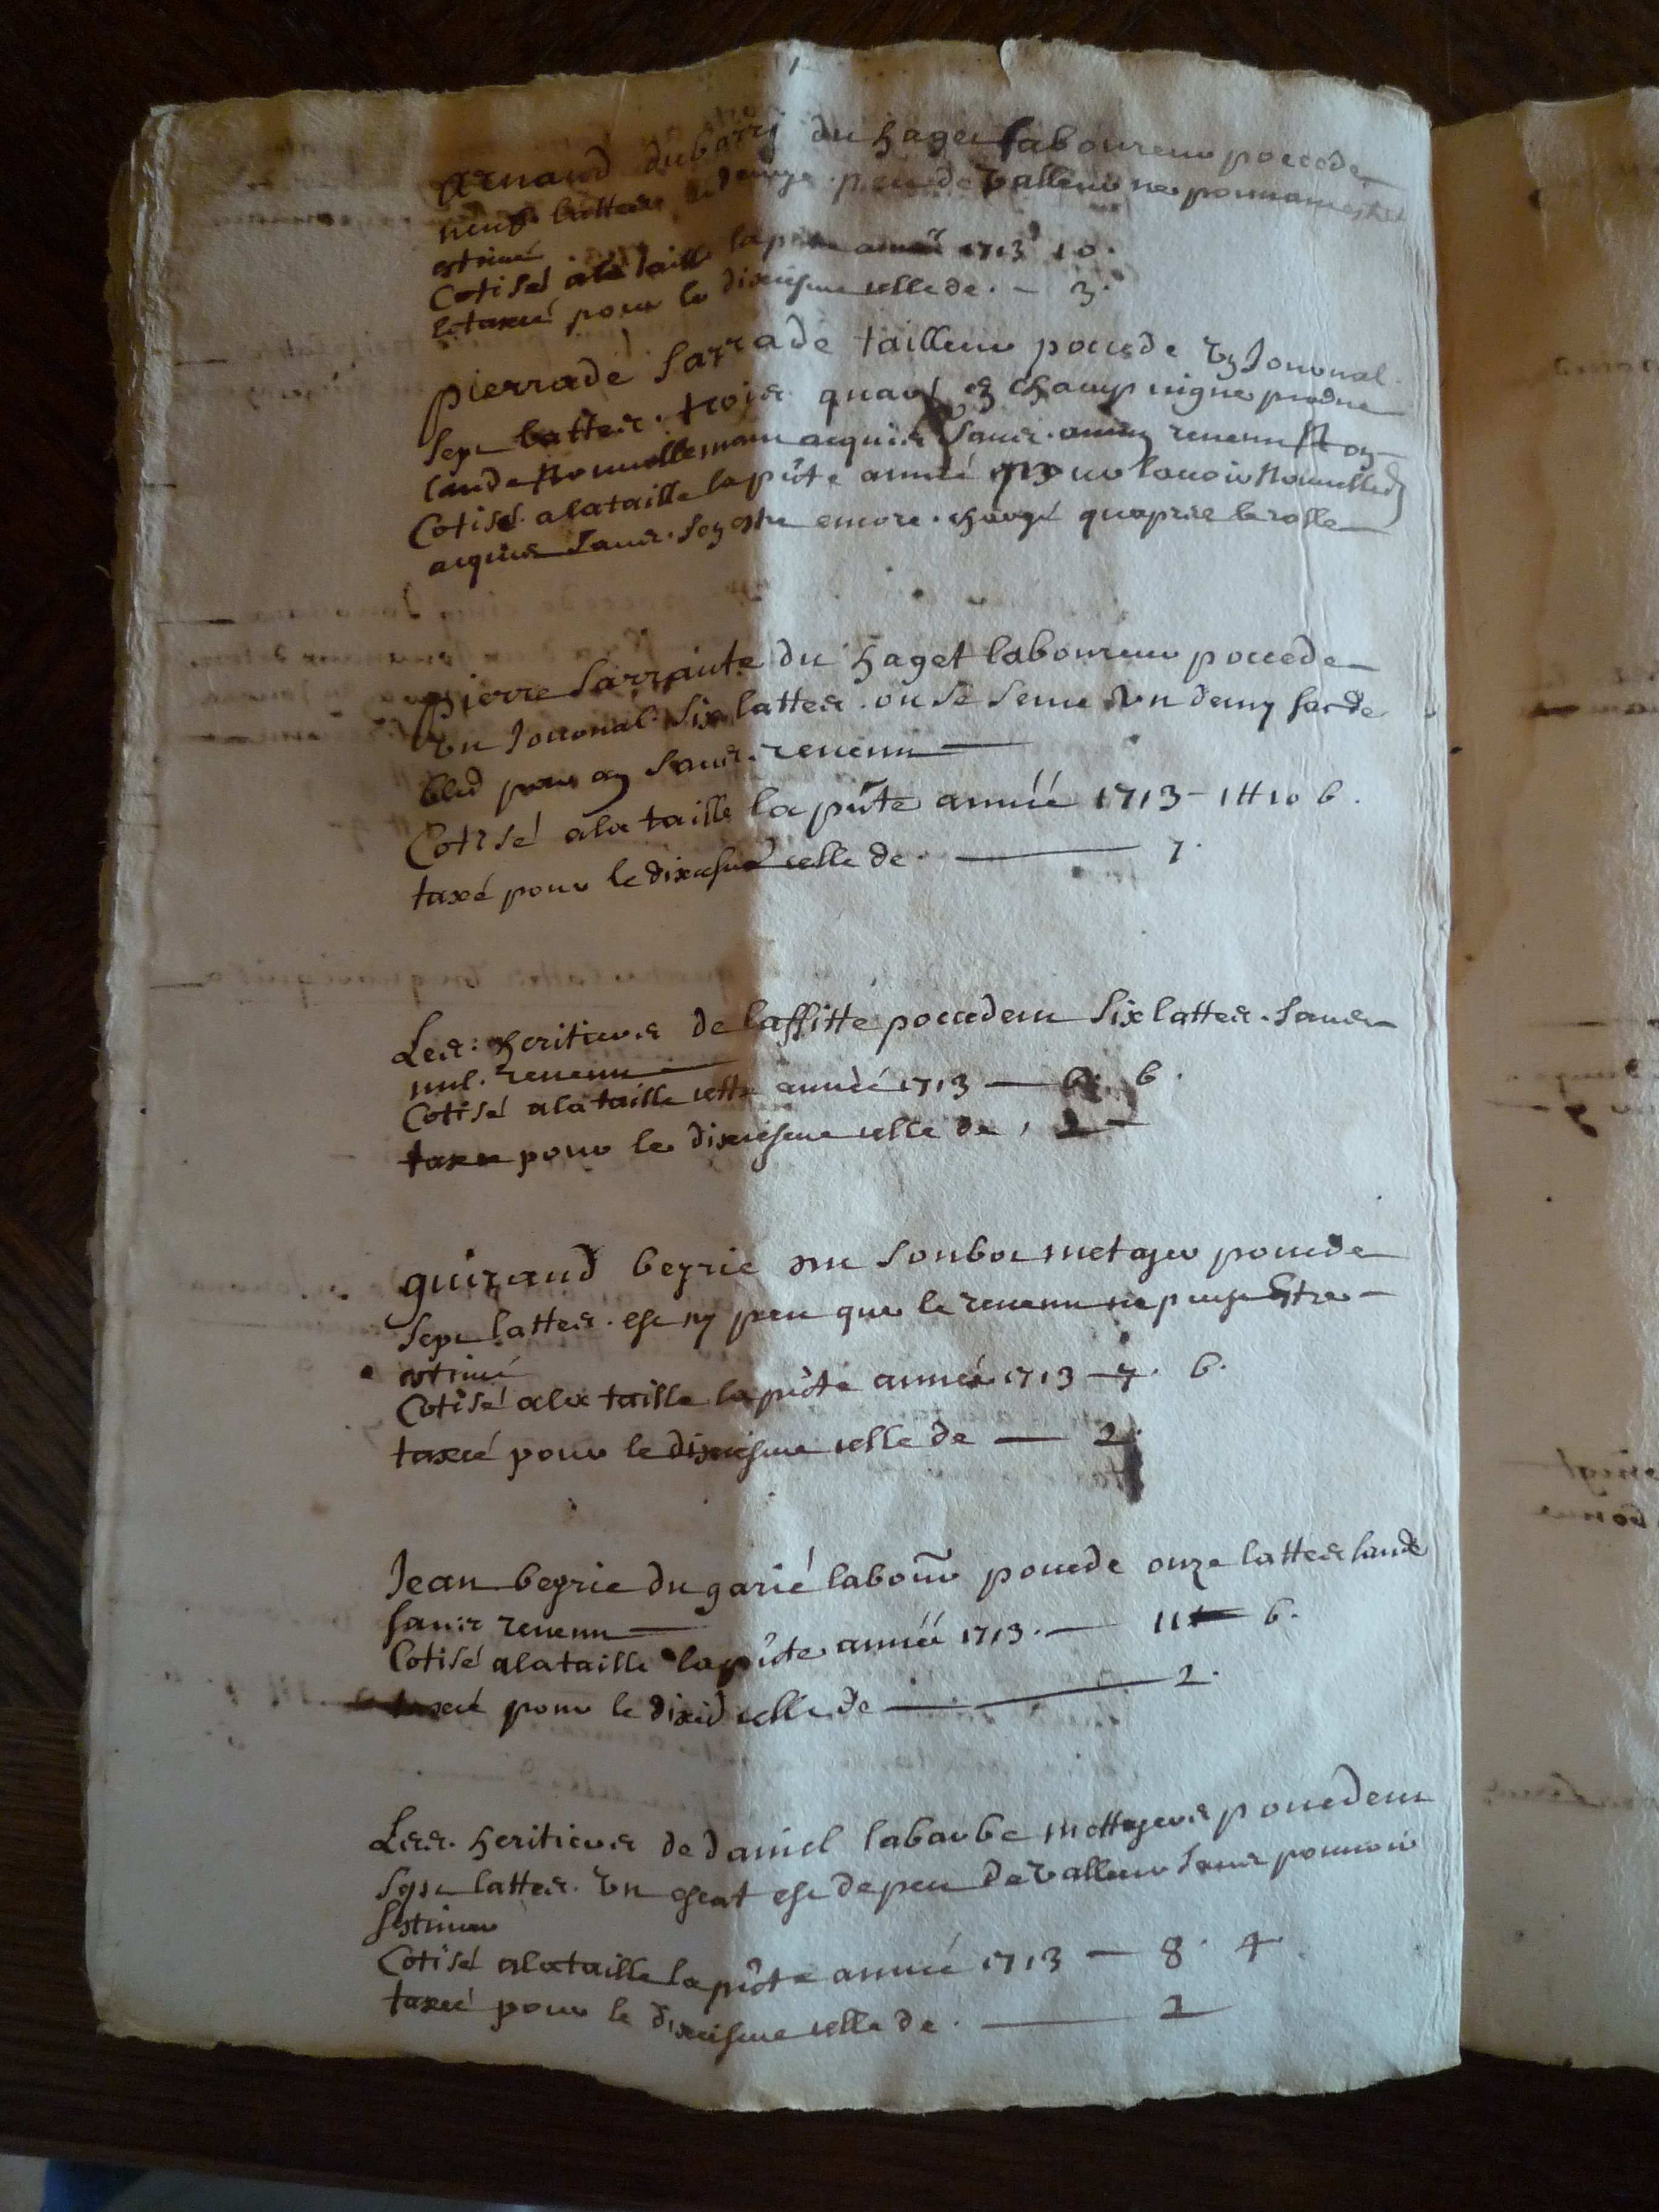 Arnand dubarry du haget laboureur poccede
neuf lattes et demye peu de valleur ne pouvant estre
estimé
Cotisé a la taille la pnte année 1713 10.
et taxcé pour le dixciesme celle de. - 3.
pierrade Sarrade tailleur poccede un Journal
Sept lattes. trois quarts en champ vigne
lande nouvellement acquise sans. aucun revenu
Cotisé a la taille la pnte année 1713 pour lavoir nouvellement
acquis sans. son estre encore. chargé quapres le rolle
pierre Sarrainte du haget laboureur poccede
un Journal Six lattes. ou se seme un demy sac de
bled sans. revenu
Cotisé a la taille la pnte année 1713 - 1tt 10 6.
taxé pour le dixiesme celle de. 7.
Les: heritiers de laffitte poccedent Six lattes. sans
nul. revenu
Cotisé a la taille cette année 1713 — 6. 6.
taxce pour le dixciesme celle de, 2 -
guiraud beyrie metayer poccede
Sept lattes. est sy peu que le revenu ne puisse Estre -
estimé
Cotisé a la taille la pnte année 1713 — 7. 6.
taxcé pour le dixciesme celle de — 2.
Jean beyrie du garié labour poccede onze lattes lande
sans revenu
Cotisé a la taille la pnte année 1713. — 11 — 6.
taxcé pour le dixie celle de — 2.
Les. heritiers de daniel labarbe mettayers poccedent
Sept lattes. un escat est de peu de valleur sans pouvoir
sestimer
Cotisé a la taille la pnte année 1713 — 8. 4.
taxcé pour le dixciesme celle de. — 2